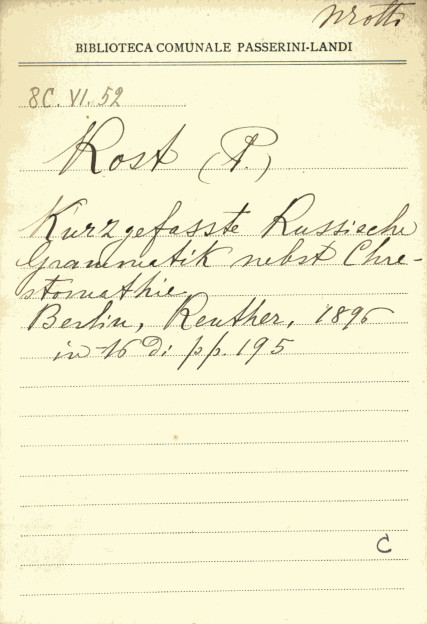 BIBLIOTECA COMUNALE PASSERINI-LANDI
8C. VI. 52
Rost (P.)
Kurzgefasste Russische
Grammatik nebst Chre-
stomathie
Berlin, Reuther, 1896
in-16 di pp. 195
C